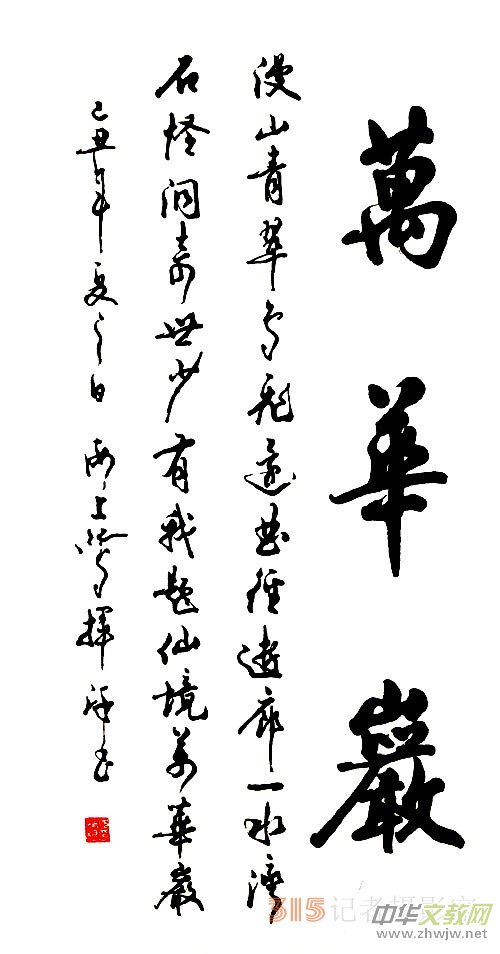 萬華巖
漫山青翠鸟飛 曲徑 廊一水
石怪洞奇世少有我題仙境萬華巖
己丑年夏之日 揮 书
315记者摄影家
中华文教网
www.zhwjw.net